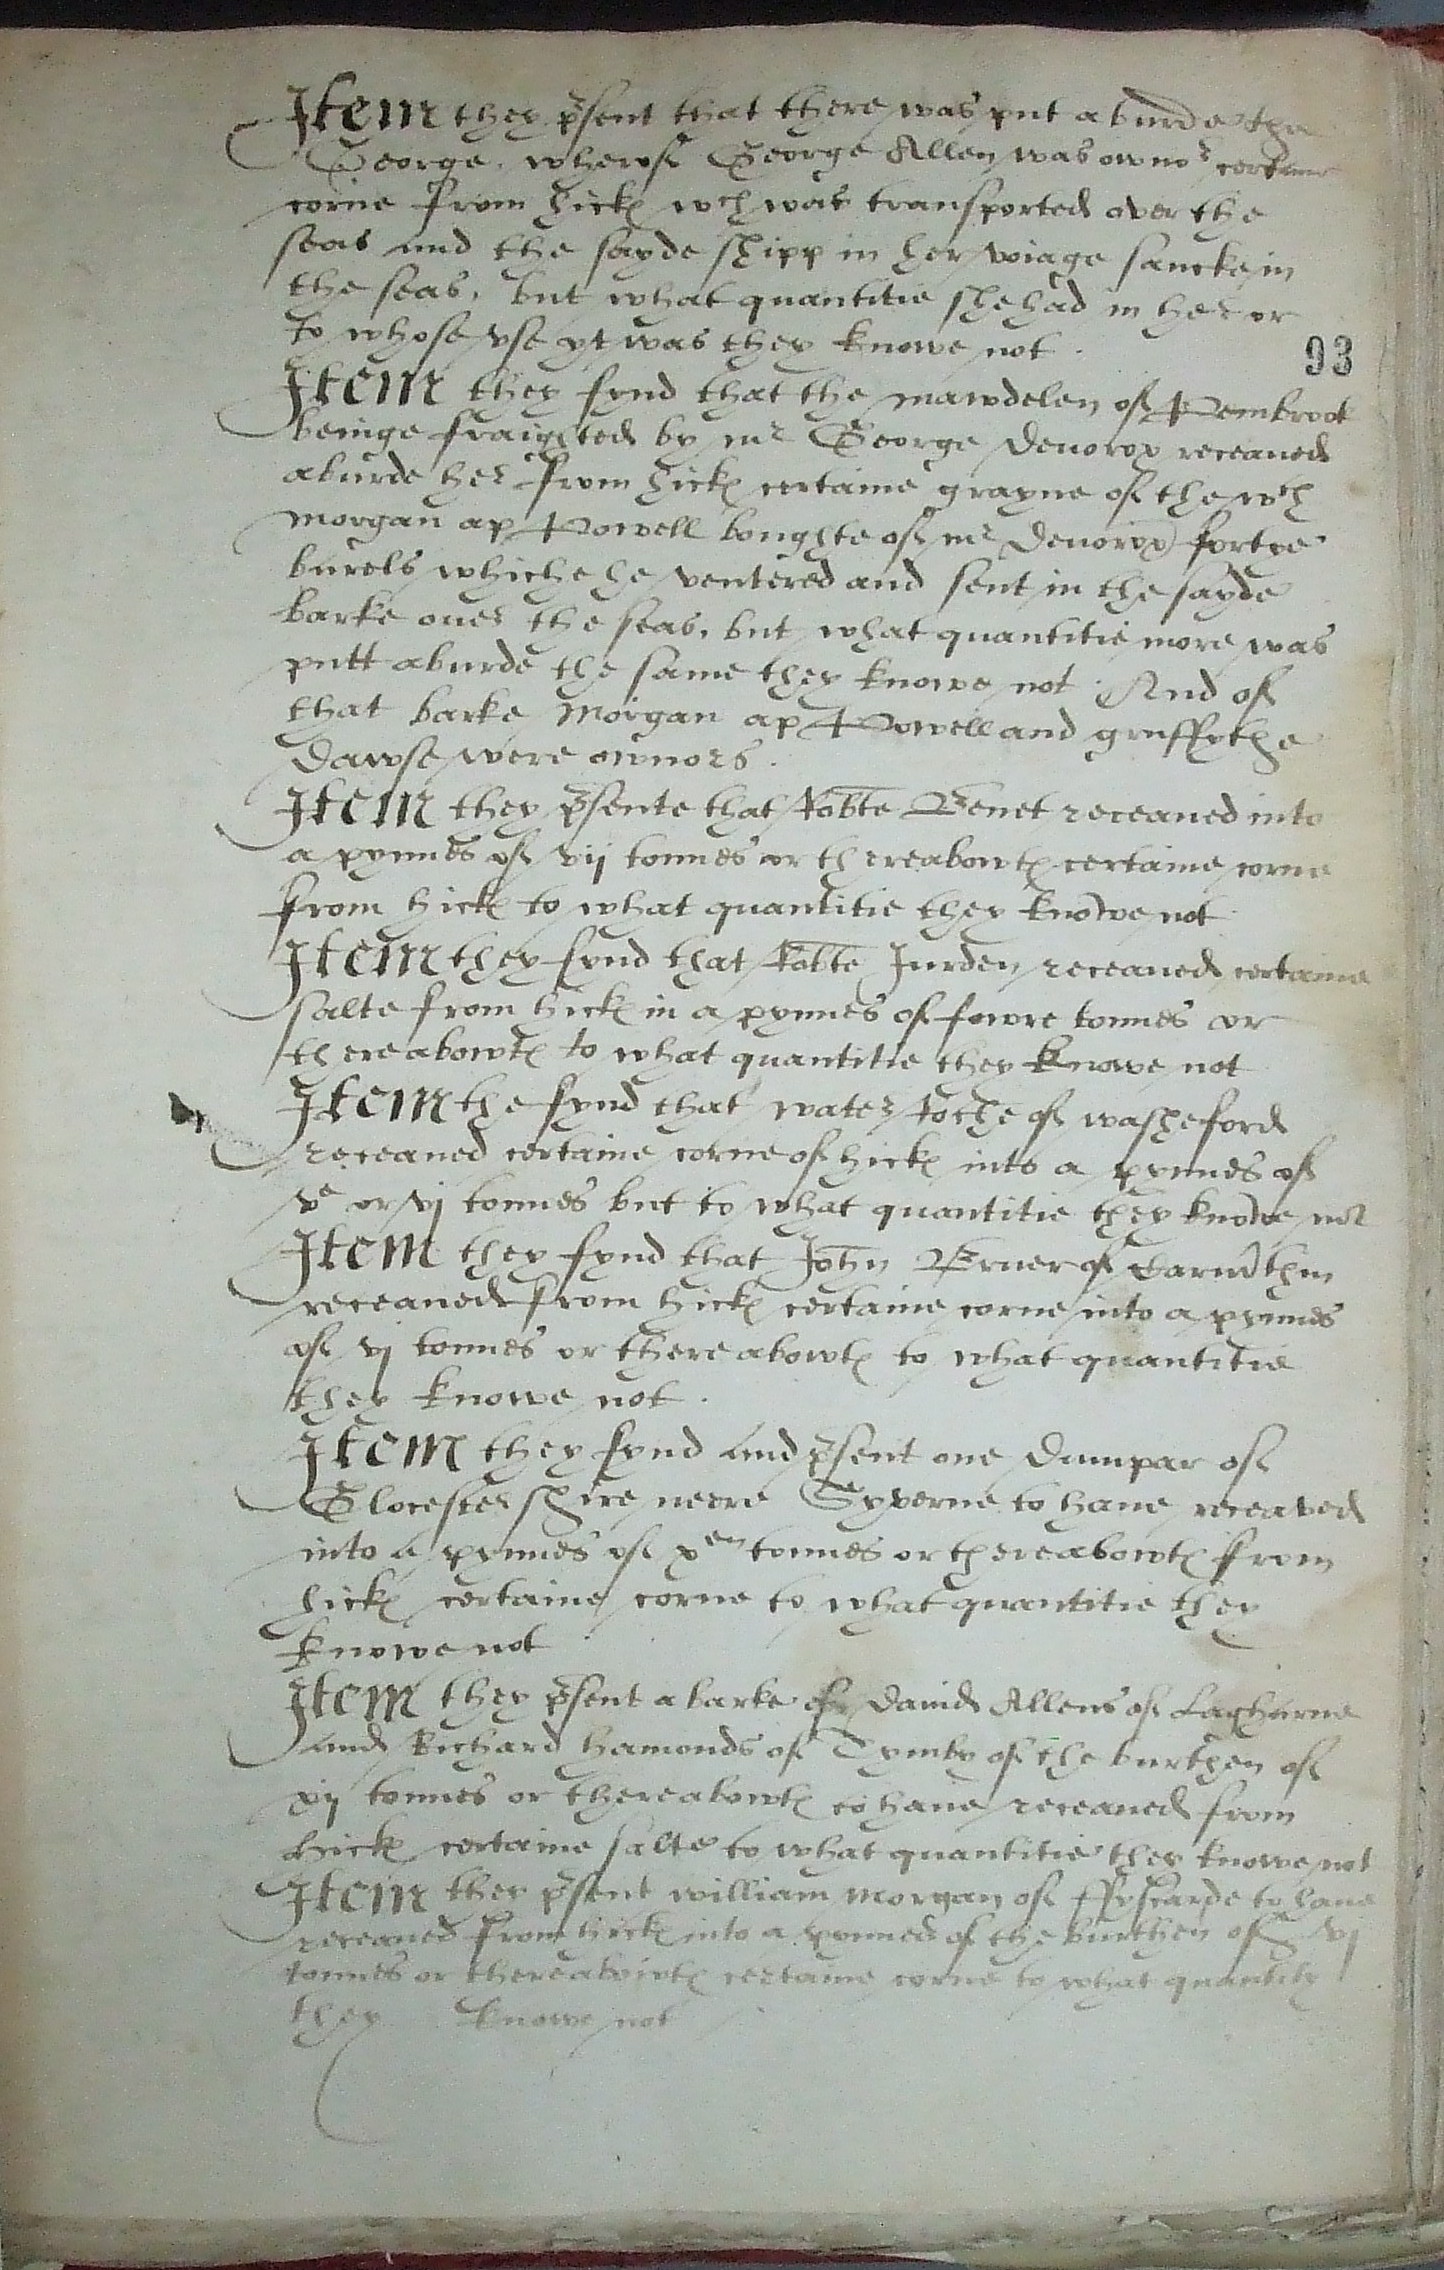 Item they p̃sent that there was put aburde the
George, wherof George Allen was ownor certaine
corne from hick wch was transported over the
seas and the sayde shipp in her viage sancke in
the seas, but what quantitie she had in her or
to whose vse yt was they knowe not.
93
Item they fynd that the mawdelen of Pembrook
beinge fraighted by mr George Deuorox receaued
aburde her from hick certaine grayne of the wch
morgan ap Powell boughte of mr Deuorox fortye
burels whiche he ventered and sent in the sayde
barke ouer the seas, but what quantitie more was
putt aburde the same they knowe not. And of
that barke Morgan ap Powell and gruffythe
Dawse were ownors.
Item they p̃sente that Robte Benet receaued into
a pynnes of vij tonnes or thereabowt certaine corne
from hick to what quantitie they knowe not
Item they fynd that Robte Jurden receaued certaine
salte from hick in a pynnes of fowre tonnes or
thereabowt to what quantitie they knowe not
Item the fynd that water Roche of washeford
receaued certaine corne of hick into a pynnes of
v or vj tonnes but to what quantitie they knowe not
Item they fynd that John of Carmthin
receaued from hick certaine corne into a pynnes
of vj tonnes or thereabowt to what quantitie
they knowe not.
Item they fynd and p̃sent one Dumpar of
Glocester shire neere Syverne to haue receaved
into a pynnes of xen tonnes or thereabowt from
hick certaine corne to what quantitie they
knowe not
Item they p̃sent a barke of Dauid Allens of Lagharne
and Richard Hamonds of Tymby of the burthen of
xij tonnes or thereabowt to haue receaued from
hick certaine salte to what quantitie they knowe not
Item they p̃sent william morgan of ffyscarde to haue
receaued from hick into a pynnes of the burthen of vj
tonnes or thereabowt certaine corne to what quantity
they knowe not